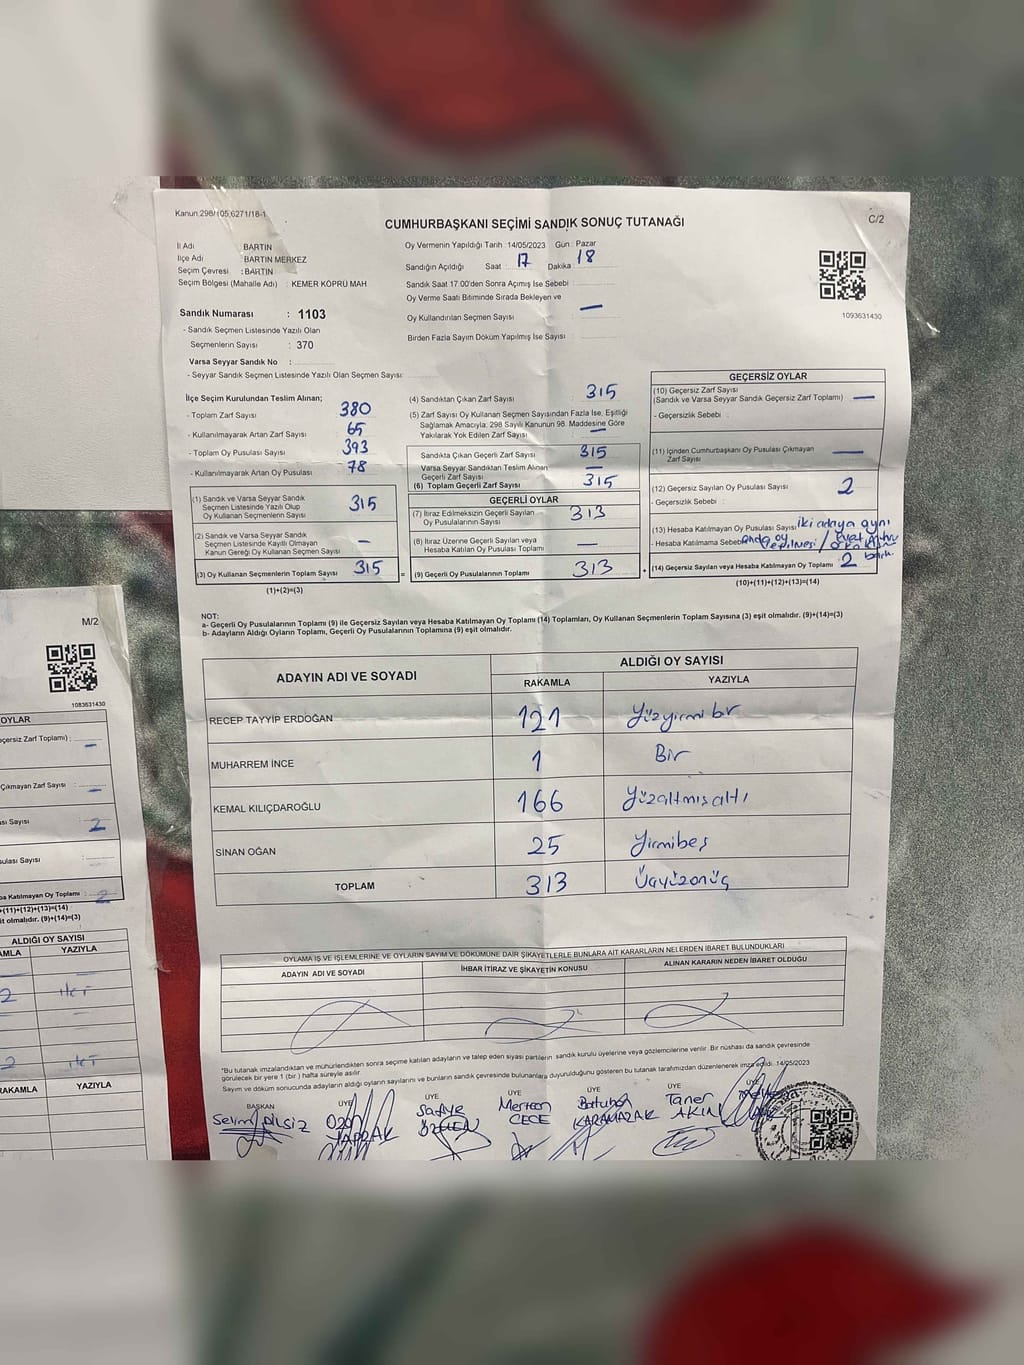 Kanun.298/105,6271/18-1
C/2
CUMHURBAŞKANI SEÇİMİ SANDIK SONUÇ TUTANAĞI
İl Adı : BARTIN
İlçe Adı : BARTIN MERKEZ
Seçim Çevresi : BARTIN
Seçim Bölgesi (Mahalle Adı) : KEMER KÖPRÜ MAH
Sandık Numarası : 1103
- Sandık Seçmen Listesinde Yazılı Olan
Seçmenlerin Sayısı : 370
Varsa Seyyar Sandık No :
- Seyyar Sandık Seçmen Listesinde Yazılı Olan Seçmen Sayısı:
Oy Vermenin Yapıldığı Tarih : 14/05/2023 Gün : Pazar
Sandığın Açıldığı Saat : 17 Dakika : 18
Sandık Saat 17:00'den Sonra Açımış İse Sebebi
Oy Verme Saati Bitiminde Sırada Bekleyen ve
Oy Kullandırılan Seçmen Sayısı —
Birden Fazla Sayım Döküm Yapılmış İse Sayısı
1093631430
İlçe Seçim Kurulundan Teslim Alınan;
- Toplam Zarf Sayısı 380
- Kullanılmayarak Artan Zarf Sayısı 65
- Toplam Oy Pusulası Sayısı 393
- Kullanılmayarak Artan Oy Pusulası 78
(1) Sandık ve Varsa Seyyar Sandık
Seçmen Listesinde Yazılı Olup
Oy Kullanan Seçmenlerin Sayısı 315
(2) Sandık ve Varsa Seyyar Sandık
Seçmen Listesinde Kayıtlı Olmayan
Kanun Gereği Oy Kullanan Seçmen Sayısı —
(3) Oy Kullanan Seçmenlerin Toplam Sayısı 315
(1)+(2)=(3)
(4) Sandıktan Çıkan Zarf Sayısı 315
(5) Zarf Sayısı Oy Kullanan Seçmen Sayısından Fazla İse, Eşitliği
Sağlamak Amacıyla; 298 Sayılı Kanunun 98. Maddesine Göre
Yakılarak Yok Edilen Zarf Sayısı —
Sandıkta Çıkan Geçerli Zarf Sayısı 315
Varsa Seyyar Sandıktan Teslim Alınan
Geçerli Zarf Sayısı —
(6) Toplam Geçerli Zarf Sayısı 315
GEÇERLİ OYLAR
(7) İtiraz Edilmeksizin Geçerli Sayılan
Oy Pusulalarının Sayısı 313
(8) İtiraz Üzerine Geçerli Sayılan veya
Hesaba Katılan Oy Pusulası Toplamı —
= (9) Geçerli Oy Pusulalarının Toplamı 313
GEÇERSİZ OYLAR
(10) Geçersiz Zarf Sayısı
(Sandık ve Varsa Seyyar Sandık Geçersiz Zarf Toplamı) —
- Geçersizlik Sebebi :
(11) İçinden Cumhurbaşkanı Oy Pusulası Çıkmayan
Zarf Sayısı —
(12) Geçersiz Sayılan Oy Pusulası Sayısı 2
- Geçersizlik Sebebi :
(13) Hesaba Katılmayan Oy Pusulası Sayısı iki adaya aynı
- Hesaba Katılmama Sebebi anda oy
+ (14) Geçersiz Sayılan veya Hesaba Katılmayan Oy Toplamı 2
(10)+(11)+(12)+(13)=(14)
NOT:
a- Geçerli Oy Pusulalarının Toplamı (9) ile Geçersiz Sayılan veya Hesaba Katılmayan Oy Toplamı (14) Toplamları, Oy Kullanan Seçmenlerin Toplam Sayısına (3) eşit olmalıdır. (9)+(14)=(3)
b- Adayların Aldığı Oyların Toplamı, Geçerli Oy Pusulalarının Toplamına (9) eşit olmalıdır.
ADAYIN ADI VE SOYADI
ALDIĞI OY SAYISI
RAKAMLA YAZIYLA
RECEP TAYYİP ERDOĞAN 121 Yüzyirmi bir
MUHARREM İNCE 1 Bir
KEMAL KILIÇDAROĞLU 166 Yüzaltmışaltı
SİNAN OĞAN 25 Yirmibeş
TOPLAM 313 Üçyüzonüç
OYLAMA İŞ VE İŞLEMLERİNE VE OYLARIN SAYIM VE DÖKÜMÜNE DAİR ŞİKAYETLERLE BUNLARA AİT KARARLARIN NELERDEN İBARET BULUNDUKLARI
ADAYIN ADI VE SOYADI
İHBAR İTİRAZ VE ŞİKAYETİN KONUSU
ALINAN KARARIN NEDEN İBARET OLDUĞU
"Bu tutanak imzalandıktan ve mühürlendikten sonra seçime katılan adayların ve talep eden siyasi partilerin sandık kurulu üyelerine veya gözlemcilerine verilir. Bir nüshası da sandık çevresinde
görülecek bir yere 1 (bir) hafta süreyle asılır.
Sayım ve döküm sonucunda adayların aldığı oyların sayılarını ve bunların sandık çevresinde bulunanlara duyurulduğunu gösteren bu tutanak tarafımızdan düzenlenerek imza edildi. 14/05/2023
BAŞKAN ÜYE ÜYE ÜYE ÜYE ÜYE ÜYE
Selim DİLSİZ
YAPRAK
Sadiye
ÖZMEN
Mertcan
CECE
Batuhan
KARAMAZAK
Taner
AKIN
M/2
1083631430
OYLAR
çersiz Zarf Toplamı) : —
Çıkmayan Zarf Sayısı —
ası Sayısı 2
sulası Sayısı
ba Katılmayan Oy Toplamı : 2
+(11)+(12)+(13)=(14)
it olmalıdır. (9)+(14)=(3)
ALDIĞI OY SAYISI
AMLA YAZIYLA
2 iki
2 iki
RAKAMLA YAZIYLA